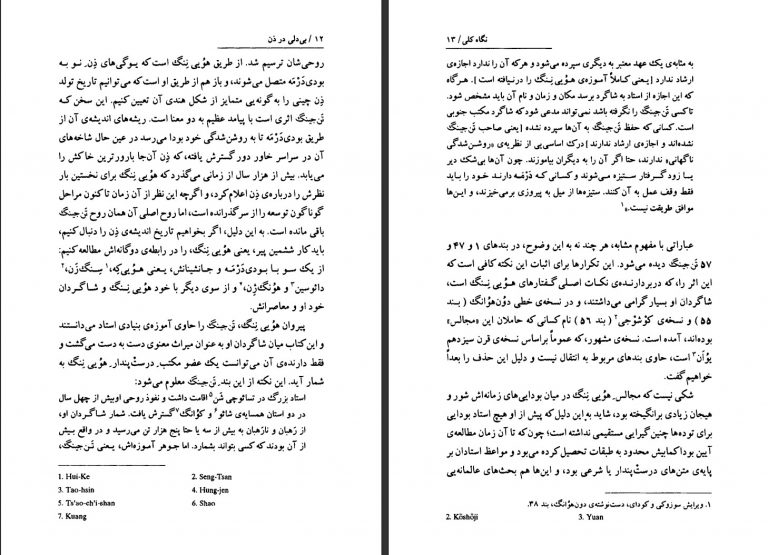 ۱۲ / بی‌دلی در ذن
روحی‌شان ترسیم شد. از طریق هوُیی نِنگ است که یوگی‌های ذِن ِ نو به
بودی‌دَرْمَه متصل می‌شوند، و باز هم از طریق او است که می‌توانیم تاریخ تولد
ذِن چینی را به‌گونه‌یی متمایز از شکل هندی آن تعیین کنیم. این سخن که
تَن‌جینگ اثری است با پیامد عظیم به دو معنا است. ریشه‌های اندیشه‌ی آن از
طریق بودی‌دَرْمَه تا به روشن‌شدگی خود بودا می‌رسد در عین حال شاخه‌های
آن در سراسر خاور دور گسترش یافته، که ذِن آن‌جا بارورترین خاکش را
می‌یابد. بیش از هزار سال از زمانی می‌گذرد که هوُیی نِنگ برای نخستین بار
نظرش را درباره‌ی ذِن اعلام کرد، و اگرچه این نظر از آن زمان تا کنون مراحل
گوناگون توسعه را از سر گذرانده است، اما روح اصلی آن همان روح تَن‌جینگ
باقی مانده است. به این دلیل، اگر بخواهیم تاریخ اندیشه‌ی ذِن را دنبال کنیم،
باید کار ششمین پیر، یعنی هوُیی نِنگ، را در رابطه‌ی دوگانه‌اش مطالعه کنیم:
از یک سو با بودی‌دَرْمَه و جانشینانش، یعنی هوُیی‌کِه،۱ سِنگ‌زَن،۲
دائوسین۳ و هوُنگ‌ژِن،۴ و از سوی دیگر با خود هوُیی نِنگ و شاگردان
خود او و معاصرانش.
پیروان هوُیی نِنگ، تَن‌جینگ را حاوی آموزه‌ی بنیادی استاد می‌دانستند
و این کتاب میان شاگردان او به عنوان میراث معنوی دست به دست می‌گشت و
فقط دارنده‌ی آن می‌توانست یک عضو مکتب ِ درست‌ْپندار ِ هوُیی نِنگ به
شمار آید. این نکته از این بند ِ تَن‌جینگ معلوم می‌شود:
استاد بزرگ در تسائوچی شَن۵ اقامت داشت و نفوذ روحی او بیش از چهل سال
در دو استان همسایه‌ی شائو۶ و کوُانگ۷ گسترش یافت. شمار شاگردان او،
از رَهبان و نارَهبان به بیش از سه یا حتا پنج هزار تن می‌رسید و در واقع بیش
از آن بودند که کسی بتواند بشمارد. اما جوهر آموزه‌اش، یعنی تَن‌جینگ،
1. Hui-Ke 2. Seng-Tsan
3. Tao-hsin 4. Hung-jen
5. Ts'ao-ch'i-shan 6. Shao
7. Kuang
نگاه کلی / ۱۳
به مثابه‌ی یک عهد معتبر به دیگری سپرده می‌شود و هرکه آن را ندارد اجازه‌ی
ارشاد ندارد [یعنی کاملاً آموزه‌ی هوُیی نِنگ را درنیافته است]. هرگاه
که این اجازه از استاد به شاگرد برسد مکان و زمان و نام آن باید مشخص شود.
تا کسی تَن‌جینگ را نگرفته باشد نمی‌تواند مدعی شود که شاگرد مکتب جنوبی
است. کسانی که حفظ تَن‌جینگ به آن‌ها سپرده نشده [یعنی صاحب تَن‌جینگ
نشده‌اند و اجازه‌ی ارشاد ندارند] درک اساسی‌یی از نظریه‌ی «روشن‌شدگی
ناگهانی» ندارند، حتا اگر آن را به دیگران بیاموزند. چون آن‌ها بی‌شک دیر
یا زود گرفتار ستیزه می‌شوند و کسانی که دَرْمَه دارند خود را باید
فقط وقف عمل به آن کنند. ستیزه‌ها از میل به پیروزی برمی‌خیزند، و این‌ها
موافق طریقت نیست.»۱
عباراتی با مفهوم مشابه، هر چند نه به این وضوح، در بندهای ۱ و ۴۷ و
۵۷ تَن‌جینگ دیده می‌شود. این تکرارها برای اثبات این نکته کافی است که
این اثر را، که دربردارنده‌ی نکات اصلی گفتارهای هوُیی نِنگ است،
شاگردان او بسیار گرامی می‌داشتند، و در نسخه‌ی خطی دوُن‌هوُانگ (بند
۵۵) و نسخه‌ی کوُشوُجی۲ (بند ۵۶) نام کسانی که حاملان این «مجالس»
بوده‌اند، آمده است. نسخه‌ی مشهور، که عموماً براساس نسخه‌ی قرن سیزدهم
یوُاَن۳ است، حاوی بندهای مربوط به انتقال نیست و دلیل این حذف را بعداً
خواهیم گفت.
شکی نیست که مجالس ِ هوُیی نِنگ در میان بودایی‌های زمانه‌اش شور و
هیجان زیادی برانگیخته بود، شاید به این دلیل که پیش از او هیچ استاد بودایی
برای توده‌ها چنین گیرایی مستقیمی نداشته است؛ چون‌که تا آن زمان مطالعه‌ی
آیین بودا کمابیش محدود به طبقات تحصیل‌کرده می‌بود و مواعظ استادان بر
پایه‌ی متن‌های درست‌ْپندار یا شرعی بود، و این‌ها هم بحث‌های عالمانه‌یی
۱. ویرایش سوزوکی و کودای، دست‌نوشته‌ی دوُن‌هوُانگ، بند ۳۸.
2. Kōshōji 3. Yuan